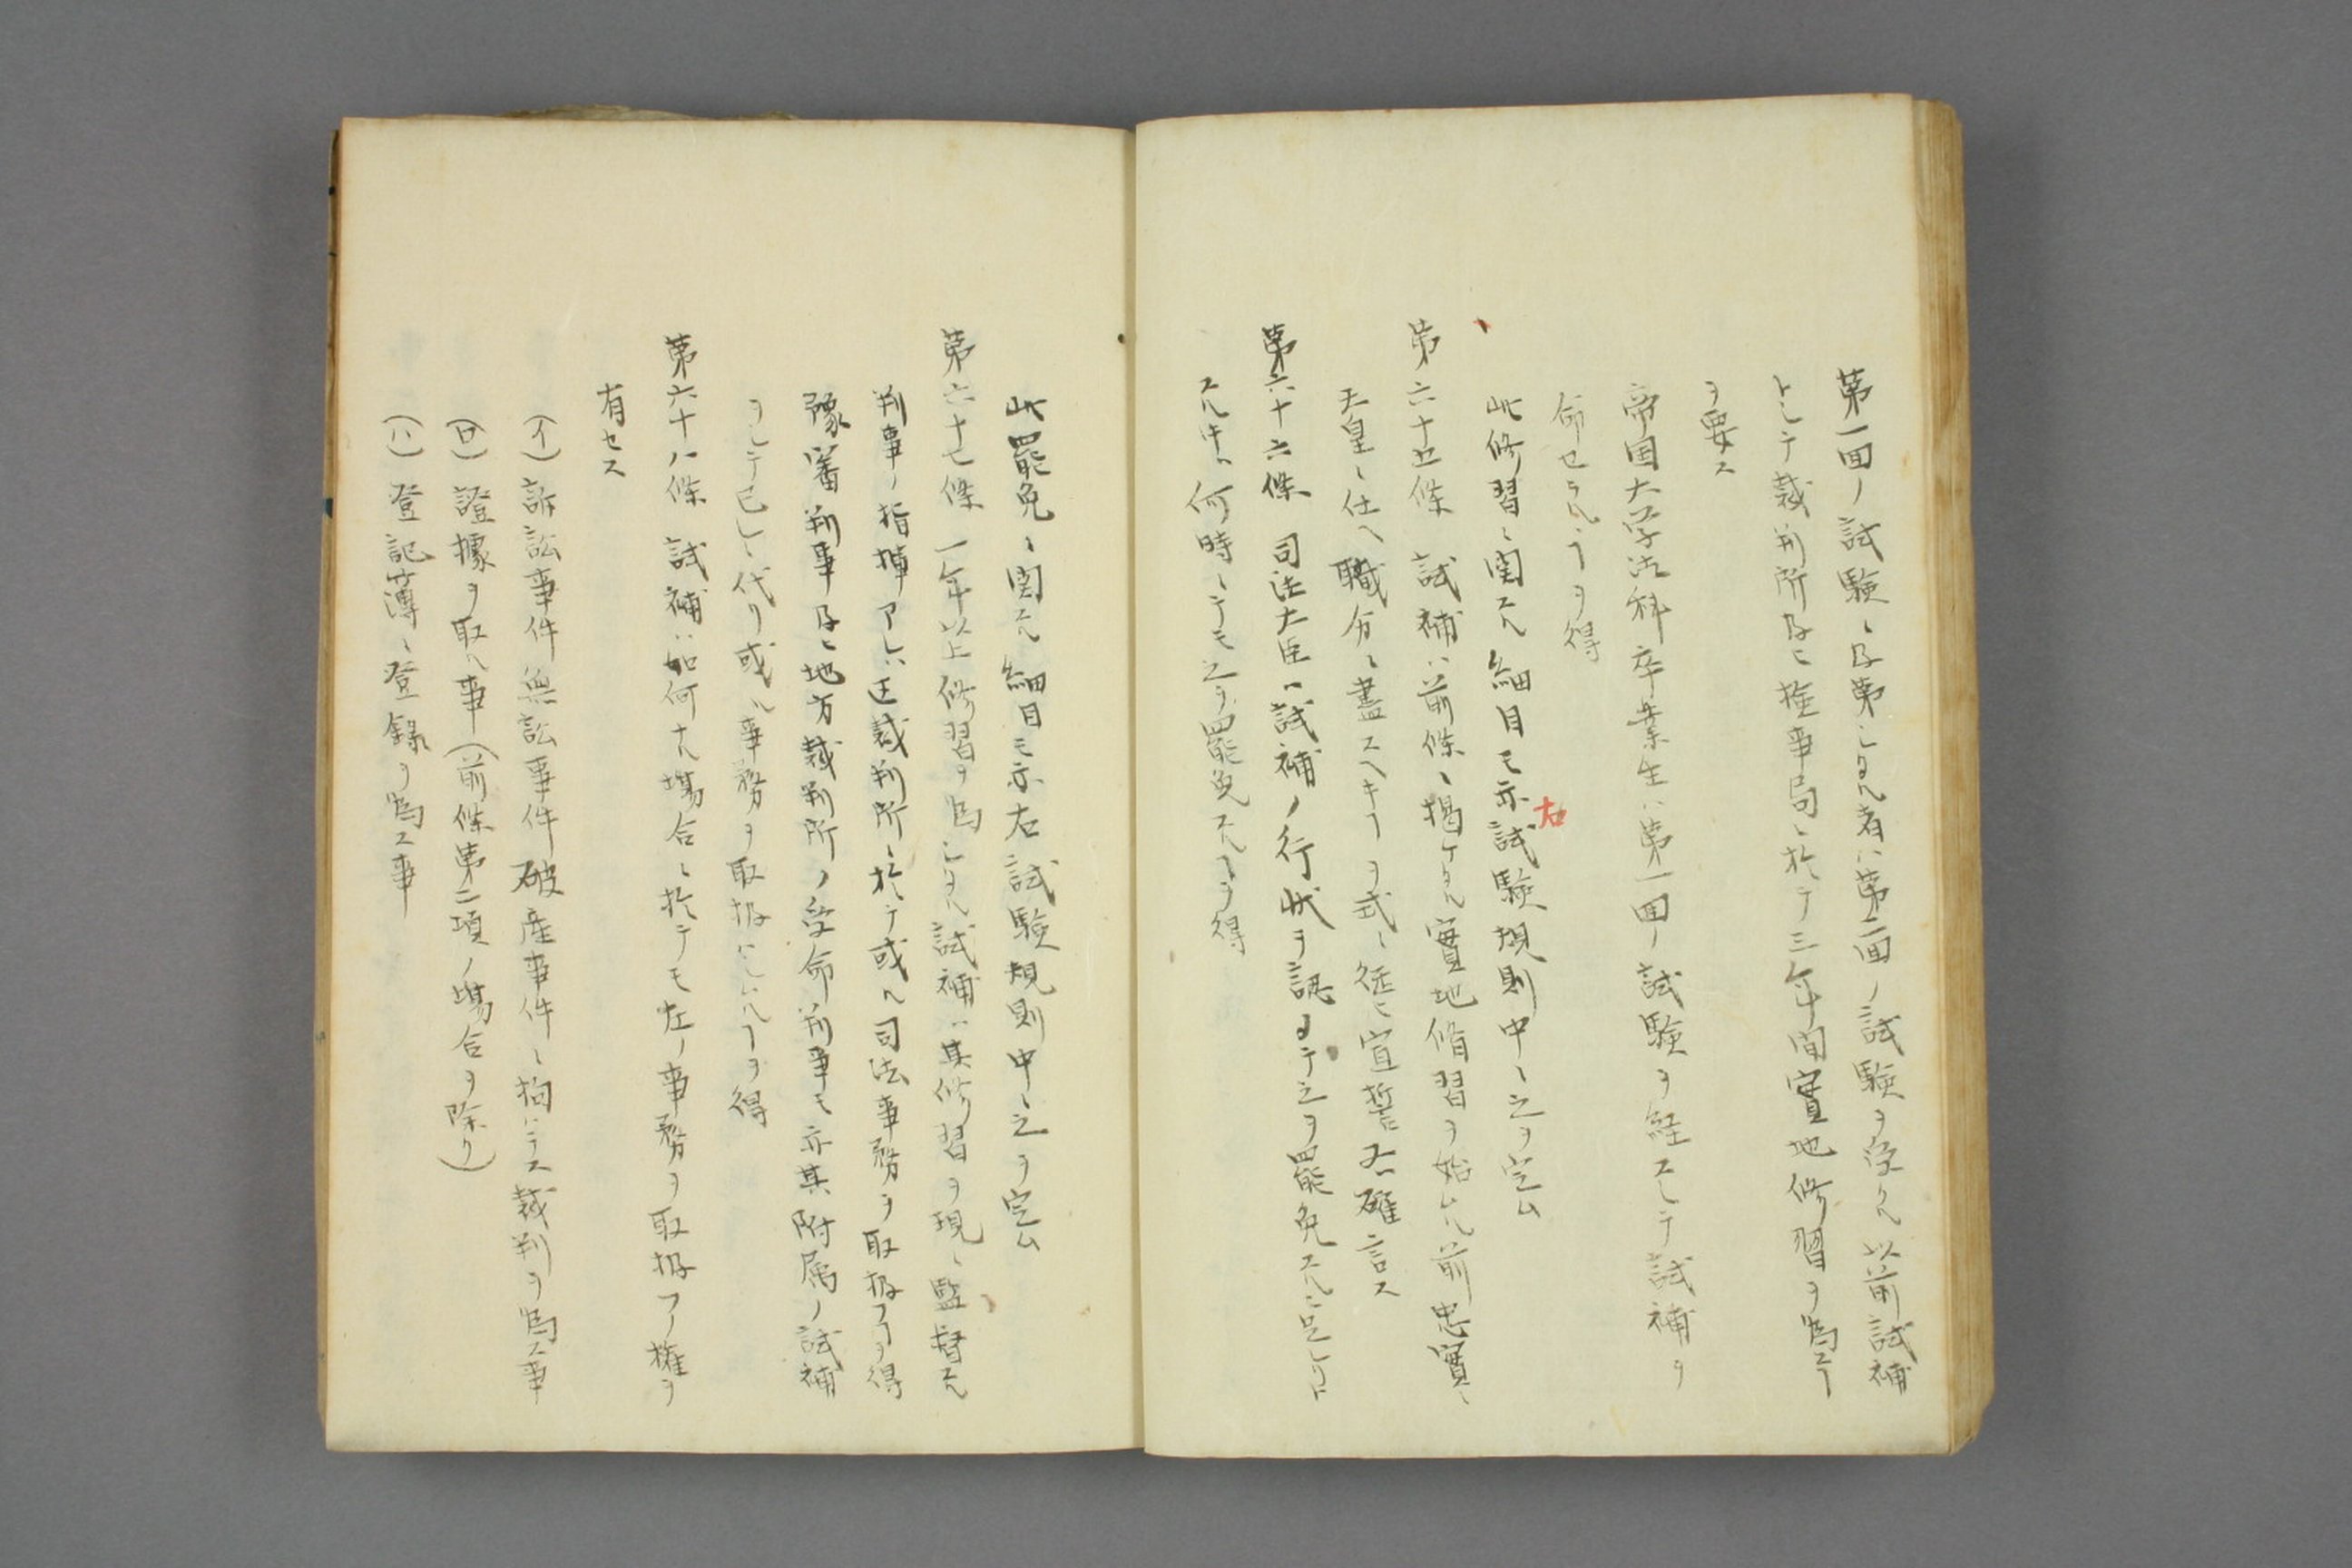 第一回ノ試験ニ及第シタル者ハ第二回ノ試験ヲ受クル以前試補
トシテ裁判所及ヒ検事局ニ於テ三年間實地修習ヲ為スヿ
ヲ要ス
帝国大学法科卒業生ハ第一回ノ試験ヲ経スシテ試補ヲ
命セラルヽヿヲ得
此修習ニ関スル細目モ亦右試験規則中ニ之ヲ定ム
第六十五條 試補ハ前條ニ掲ケタル實地脩習ヲ始ムル前忠實ニ
天皇ニ仕ヘ職分ニ盡スヘキヿヲ式ニ従ヒ宣誓又ハ確言ス
第六十六條 司法大臣ハ試補ノ行状ヲ認メテ之ヲ罷免スルニ足レリト
スルトキハ何時ニテモ之ヲ罷免スルヿヲ得
此罷免ニ関スル細目モ亦右試験規則中ニ之ヲ定ム
第六十七條 一年以上修習ヲ為シタル試補ハ其修習ヲ現ニ監督スル
判事ノ指揮アレハ区裁判所ニ於テ或ル司法事務ヲ取扱フヿヲ得
豫審判事及ヒ地方裁判所ノ受命判事モ亦其附属ノ試補
ヲシテ已レニ代リ或ル事務ヲ取扱ハシムルヿヲ得
第六十八條 試補ハ如何ナル場合ニ於テモ左ノ事務ヲ取扱フノ権ヲ
有セス
(イ)訴訟事件無訟事件破産事件ニ拘ハラス裁判ヲ為ス事
(ロ)證據ヲ取ル事(前條第二項ノ場合ヲ除ク)
(ハ)登記薄ニ登録ヲ為ス事